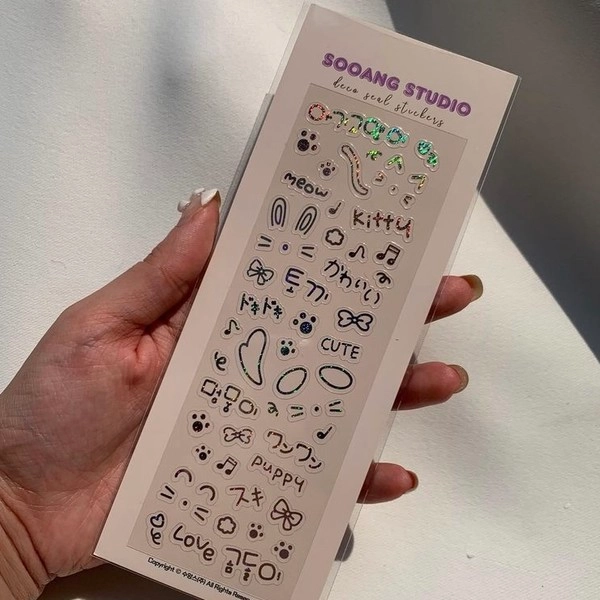 SOOANG STUDIO
deco seal stickers
meow
Kitty
かわいい
토끼
ドキドキ
CUTE
멍뭉이
ワンワン
puppy
スキ
Love 곰돌이
Copyright © 수앙스(주) All Rights Reser